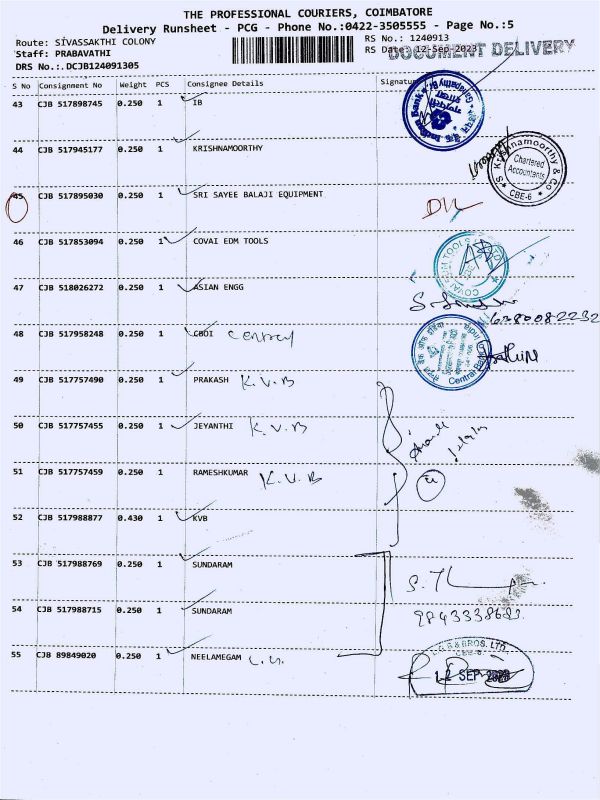 THE PROFESSIONAL COURIERS, COIMBATORE
Delivery Runsheet - PCG - Phone No.:0422-3505555 - Page No.:5
Route: SIVASSAKTHI COLONY
RS No.: 1240913
Staff: PRABAVATHI
RS Date: 12-Sep-2023
DOCUMENT DELIVERY
DRS No.:.DCJB124091305
S No Consignment No Weight PCS Consignee Details Signature
43 CJB 517898745 0.250 1 IB
44 CJB 517945177 0.250 1 KRISHNAMOORTHY
S. Krishnamoorthy & Co
Chartered
Accountants
CBE-6
45 CJB 517895030 0.250 1 SRI SAYEE BALAJI EQUIPMENT
46 CJB 517853094 0.250 1 COVAI EDM TOOLS
COVAI EDM TOOLS
47 CJB 518026272 0.250 1 ASIAN ENGG
6380082232
48 CJB 517958248 0.250 1 CBOI Central
Central Bank
49 CJB 517757490 0.250 1 PRAKASH K.V.B
50 CJB 517757455 0.250 1 JEYANTHI K.V.B
51 CJB 517757459 0.250 1 RAMESHKUMAR K.V.B
52 CJB 517988877 0.430 1 KVB
53 CJB 517988769 0.250 1 SUNDARAM
54 CJB 517988715 0.250 1 SUNDARAM
55 CJB 89849020 0.250 1 NEELAMEGAM
& BROS. LTD.
CBE-6
12 SEP 2023